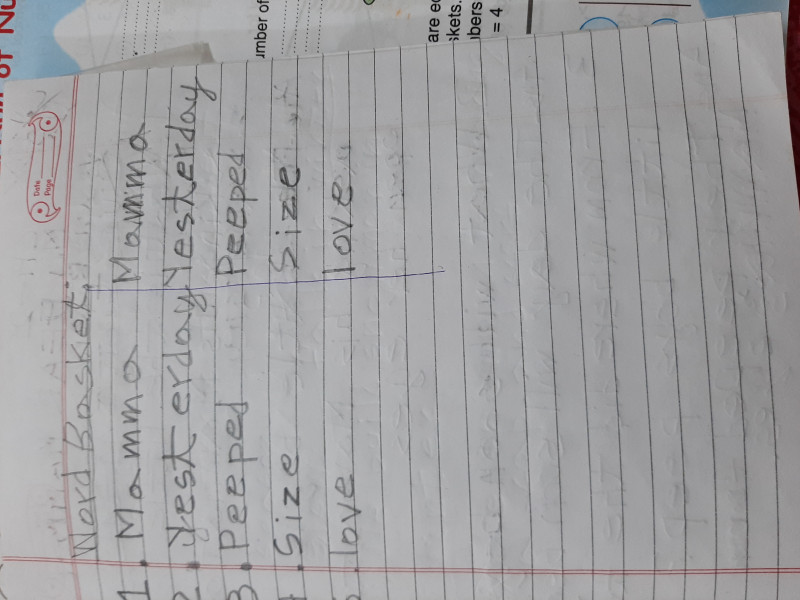 Date
Page
Word Basket:
1. Mamma Mamma
2. Yesterday Yesterday
3. Peeped Peeped
. Size Size
. love love
umber of
are e
skets.
bers
= 4